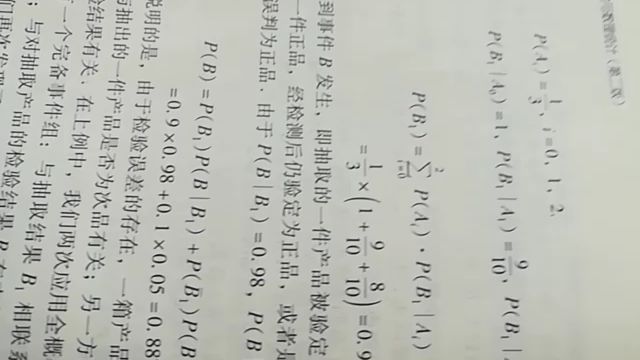 数理统计（第二版）
P(A_i)=\frac{1}{3}, i=0, 1, 2,
P(B_1|A_0)=1, P(B_1|A_1)=\frac{9}{10}, P(B_1|
P(B_1)=\sum_{i=0}^{2} P(A_i)·P(B_1|A_i)
=\frac{1}{3}×(1+\frac{9}{10}+\frac{8}{10})=0.9
到事件 B 发生，即抽取的一件产品被验定
一件正品，经检测后仍验定为正品，或者是
误判为正品．由于 P(B|B_1)=0.98, P(B
P(B)=P(B_1)P(B|B_1)+P(\bar{B}_1)P(B
=0.9×0.98+0.1×0.05=0.88
说明的是，由于检验误差的存在，一箱产品
与抽出的一件产品是否为次品有关；另一方
验结果有关．在上例中，我们两次应用全概
一个完备事件组；与抽取结果 B_1 相联系
；与对抽取产品的检验结果